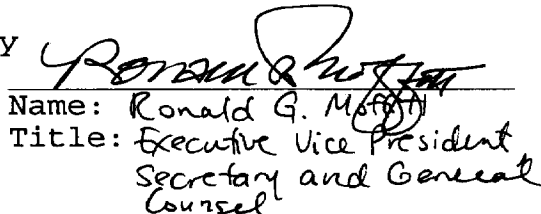 y Ronald G. Moffitt
Name: Ronald G. Moffitt
Title: Executive Vice President,
Secretary and General
Counsel